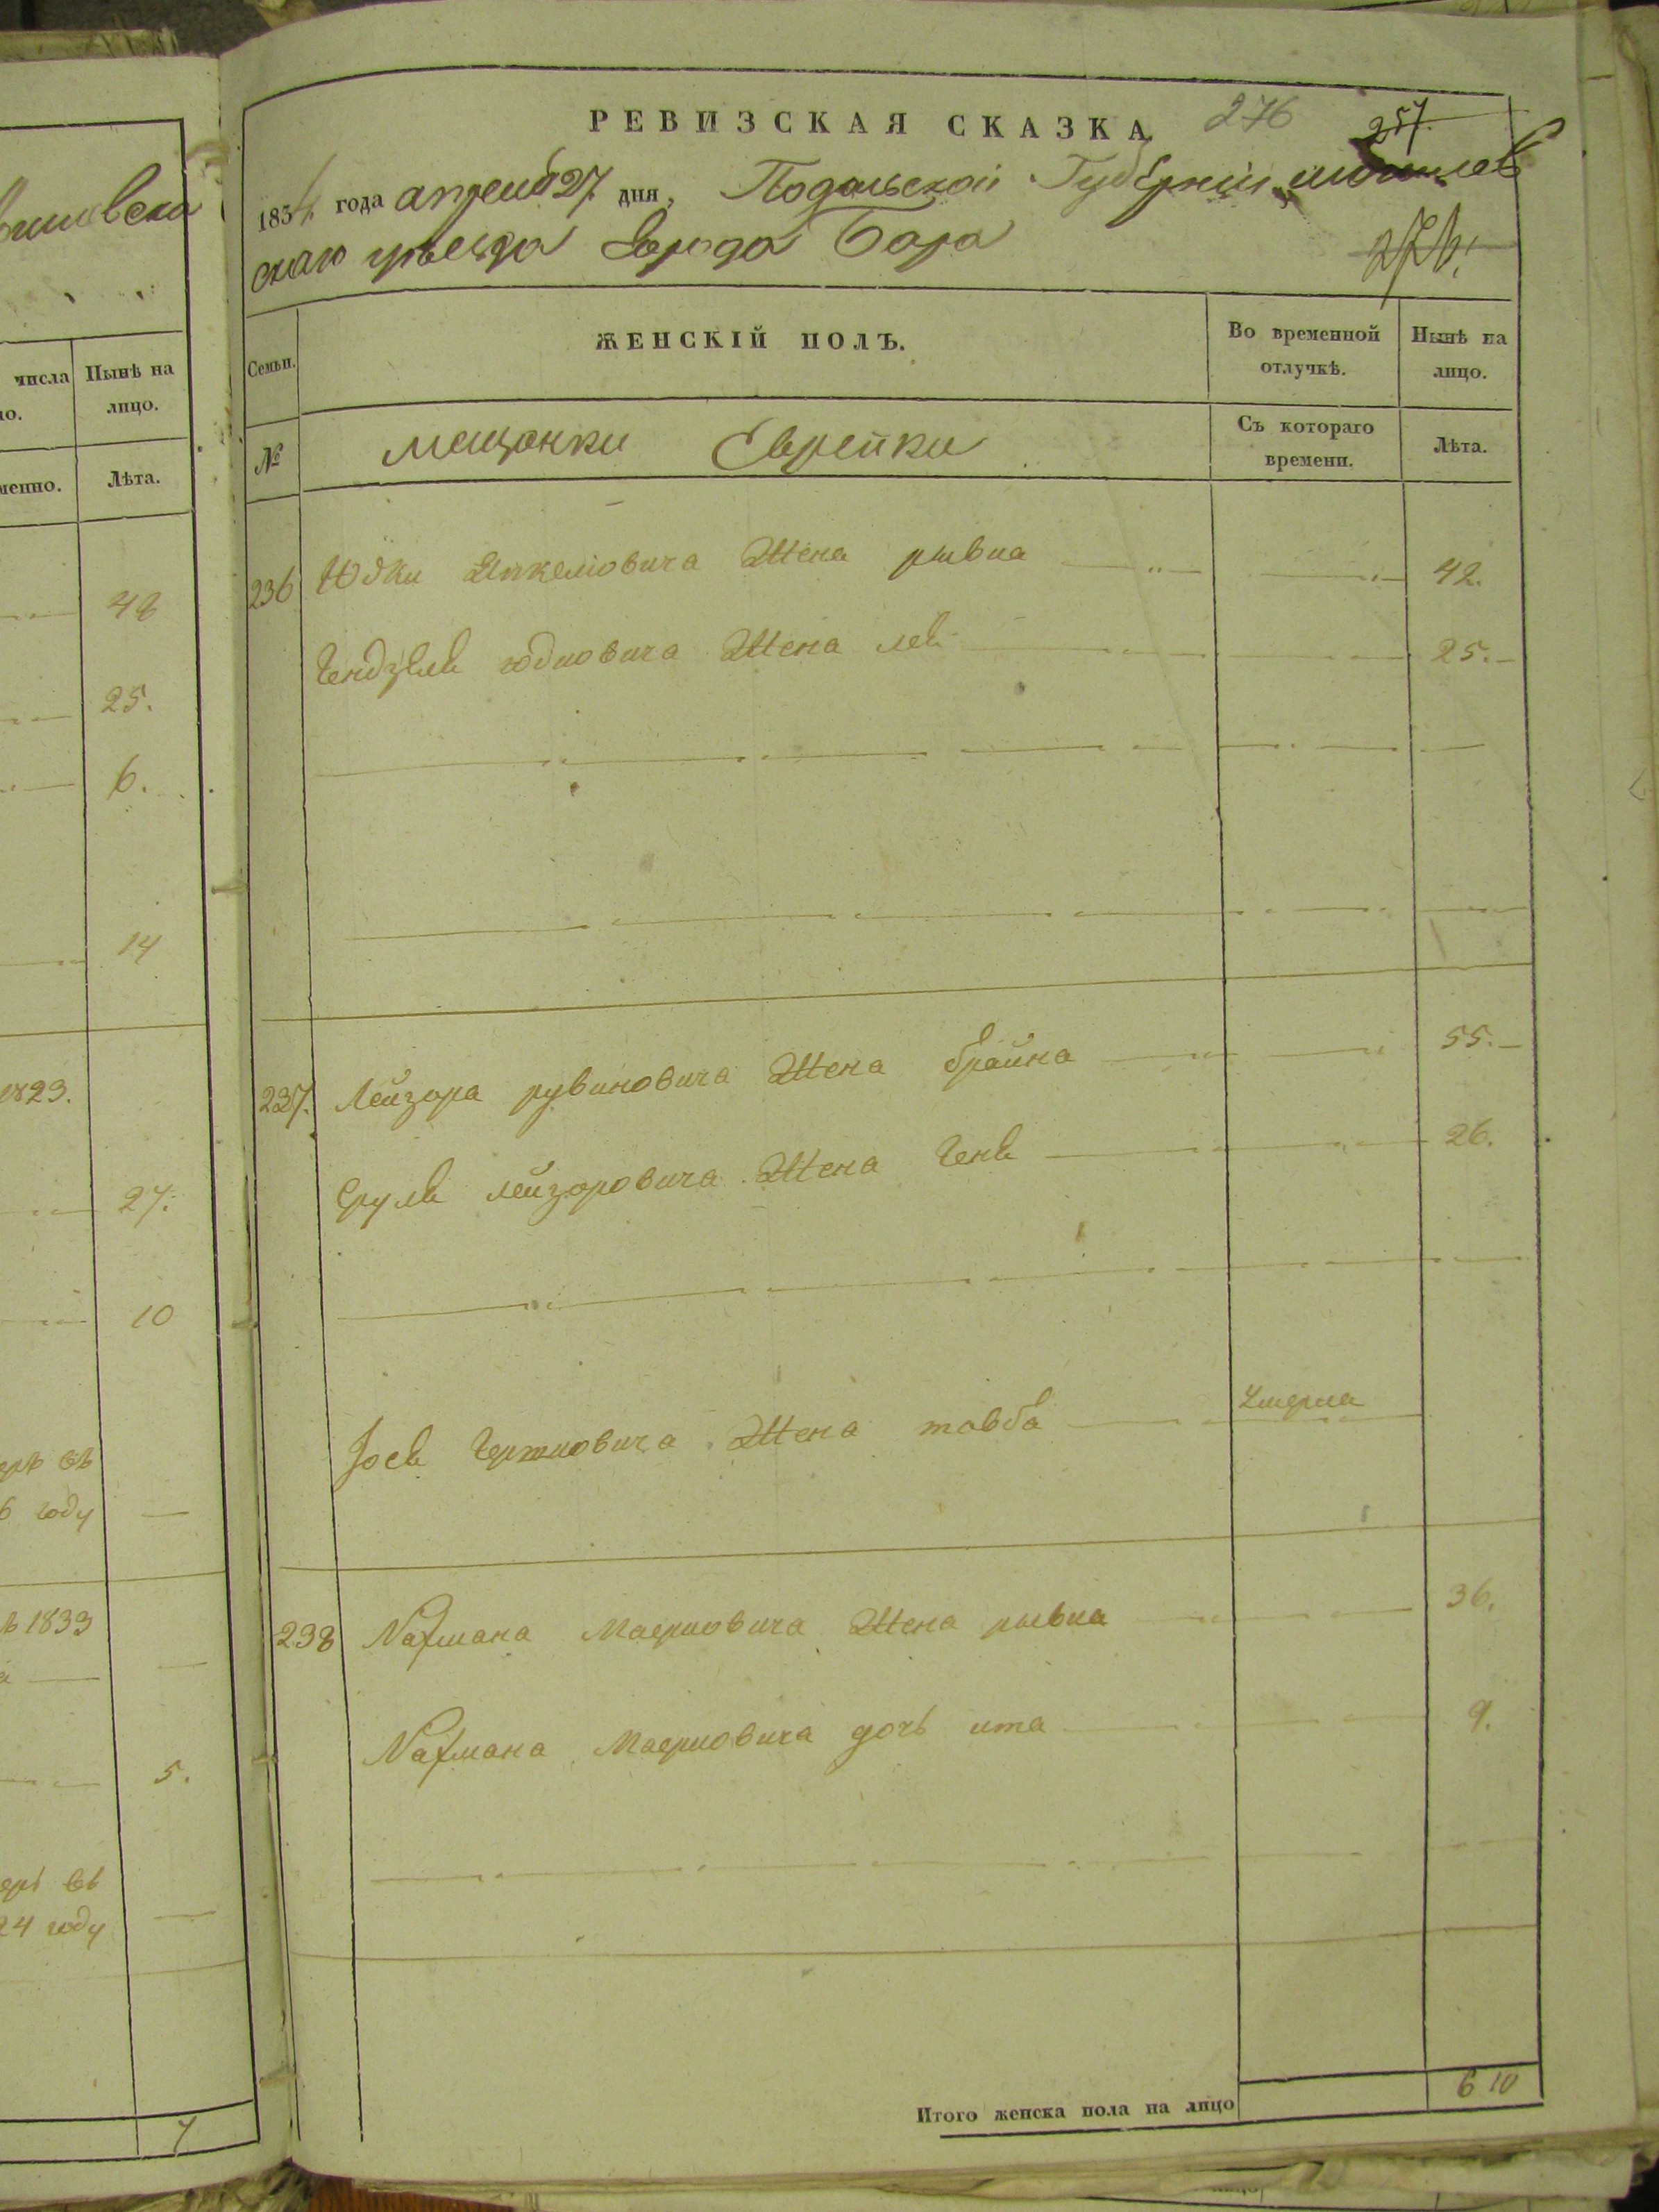 вска
числа
Нынѣ на
лицо.
Лѣта.
48
25.
6.
14
1823.
27.
10
году
1833
5.
24 году
7
РЕВИЗСКАЯ СКАЗКА 276 257.
1834 года апреля 27 дня, Подольской Губернии могилев
скаго уѣезда Города Бара 276.
Семьи. ЖЕНСКІЙ ПОЛЪ. Во временной отлучкѣ. Нынѣ на лицо.
№ мещанки Еврейки Съ котораго времени. Лѣта.
236 Юдки Янкелiовича Жена рывка 42.
Гендзеля юдковича Жена лея 25.
237. Лейзора рувиновича Жена брайна 55.
Сруля лейзоровича Жена Геня 26.
Iося Гершковича Жена товба Умерла
238 Нахмана Маерковича Жена рывка 36.
Нахмана Маерковича дочь ита 9.
Итого женска пола на лицо 6 10